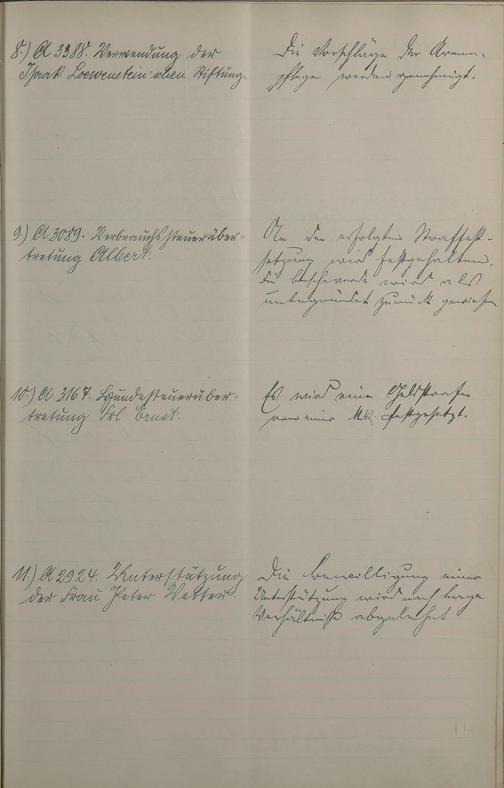 8.) A 3388. Verwendung der
Isaak Loewenstein'schen Stiftung.
Die Vorschläge der Armen-
pfleger werden genehmigt.
9.) A 3089. Verbrauchssteuerüber-
tretung Albert.
An der erfolgten Straffest-
setzung wird festgehalten,
die Beschwerde wird als
unbegründet zurück gewiesen
10.) A 3167. Hundesteuerüber-
tretung Frl. Ernst.
Es wird eine Geldstrafe
von einer Mk. festgesetzt.
11.) A 2924. Unterstützung
der Frau Peter Vetter
Die Bewilligung einer
Unterstützung wird nach Lage
Verhältniß abgelehnt